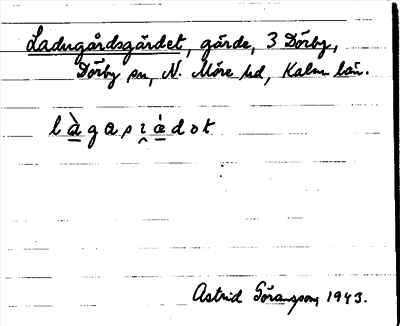 Ladugårdsgärdet, gärde, 3 Dörby,
Dörby sn, N. Möre hd, Kalm län.
Astrid Göransson, 1943.